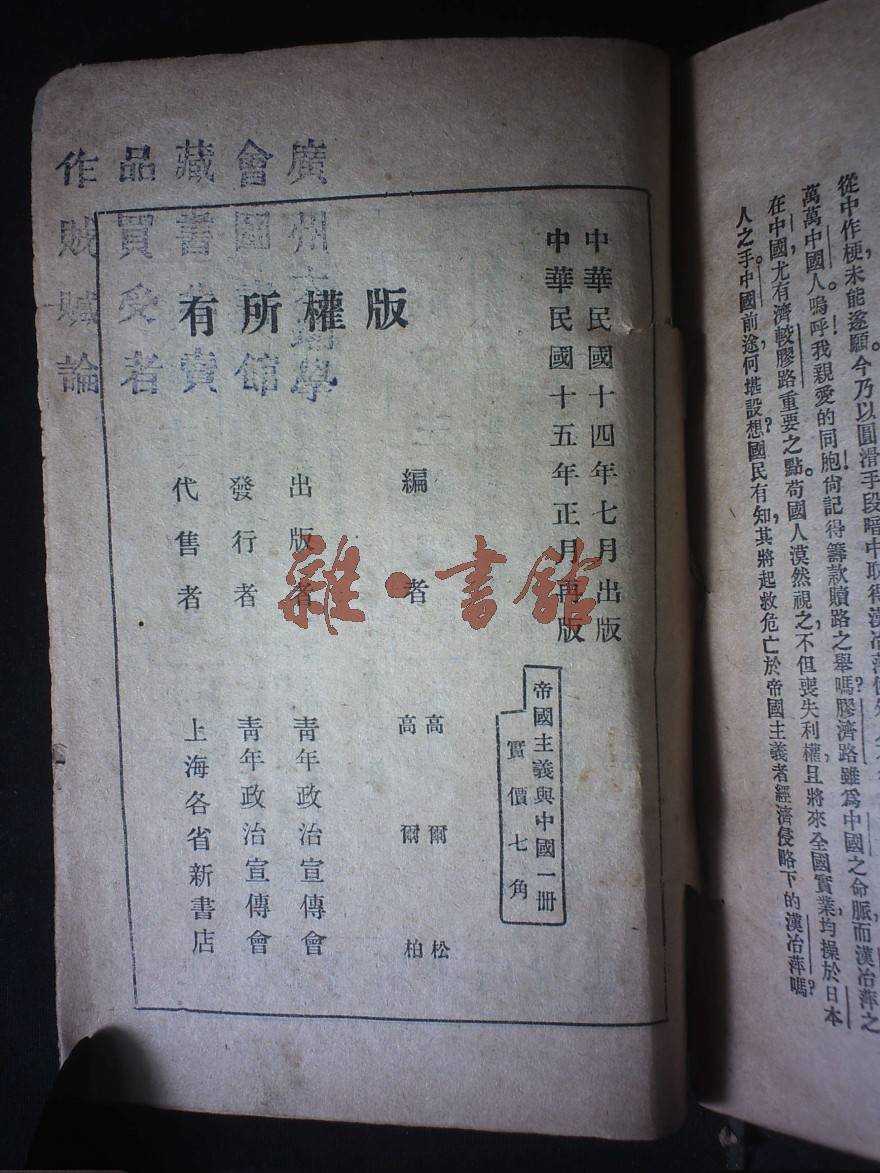 從中作梗未能遂願。今乃以圓滑手段暗中取得漢冶萍
萬萬中國人。嗚呼！我親愛的同胞！尙記得籌款贖路之舉嗎？膠濟路雖爲中國之命脈，而漢冶萍之
在中國，尤有濟較膠路重要之點。苟國人漠然視之，不但喪失利權，且將來全國實業，均操於日本
人之手。中國前途，何堪設想？國民有知，其將起救危亡於帝國主義者經濟侵略下的漢冶萍嗎？
中華民國十四年七月出版
中華民國十五年正月再版
帝國主義與中國一册
實價七角
版權所有
編者
高爾松
高爾柏
出版者 靑年政治宣傳會
發行者 靑年政治宣傳會
代售者 上海各省新書店
廣州學
會圖館
藏書賣
品買受者
作賊贓論
雜·書館